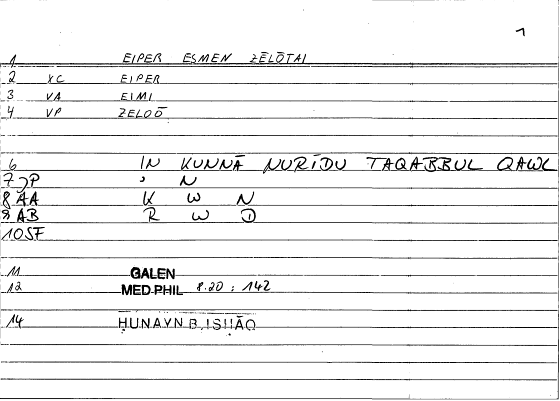 1
1 EIPER ESMEN ZĒLŌTAI
2 XC EIPER
3 VA EIMI
4 VP ZELOŌ
6 IN KUNNĀ NURĪDU TAQABBUL QAWL
7 JP ʾ N
8 AA K W N
9 AB R W D
10 SF
11 GALEN
12 MED.PHIL 8.20 : 142
14 ḤUNAYN B.ISḤĀQ